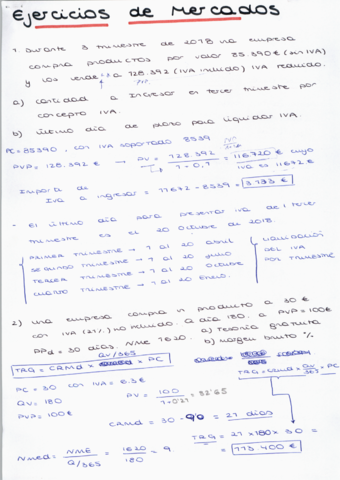 Ejercicios de Mercados
1. Durante 3 trimestre de 2018 una empresa
compra productos por valor 85.390€ (sin IVA)
y los vende a 128.392 (IVA incluido) IVA reducido.
a) cantidad a ingresar es tercer trimestre por
concepto IVA.
b) último día de plazo para liquidar IVA.
PC = 85390, con IVA soportado 8539
PVP = 128.392 € → PV = 128.392 = 116720 € cuyo
IVA es 11672 €
Importa de
Iva a ingresar = 11672 - 8539 = 3133 €
- El último día para presentar iva del tercer
trimestre es el 20 octubre de 2018.
PRIMER TRIMESTRE → 1 al 20 abril
SEGUNDO TRIMESTRE → 1 al 20 julio
TERCER TRIMESTRE → 1 al 20 octubre
CUARTO TRIMESTRE → 1 al 20 Enero.
DEL IVA
POR TRIMESTRE
2) una empresa compra un producto a 30 €
con IVA (21%) no incluido. Q día 180. a PVP = 100€
PPd = 30 días. NME 1620. a) Tesorería gratuita
b) Margen bruto %
QV/365
TRG = CAMd x x PC
PC = 30 con IVA = 6.3 €
QV = 180
PVP = 100 €
PV = 100
CAMd = 30 - = 21 días
NMEd = NME = 1620 = 9
Q/365 180
TRG = 21 x 180 x 30 =
113 400 €